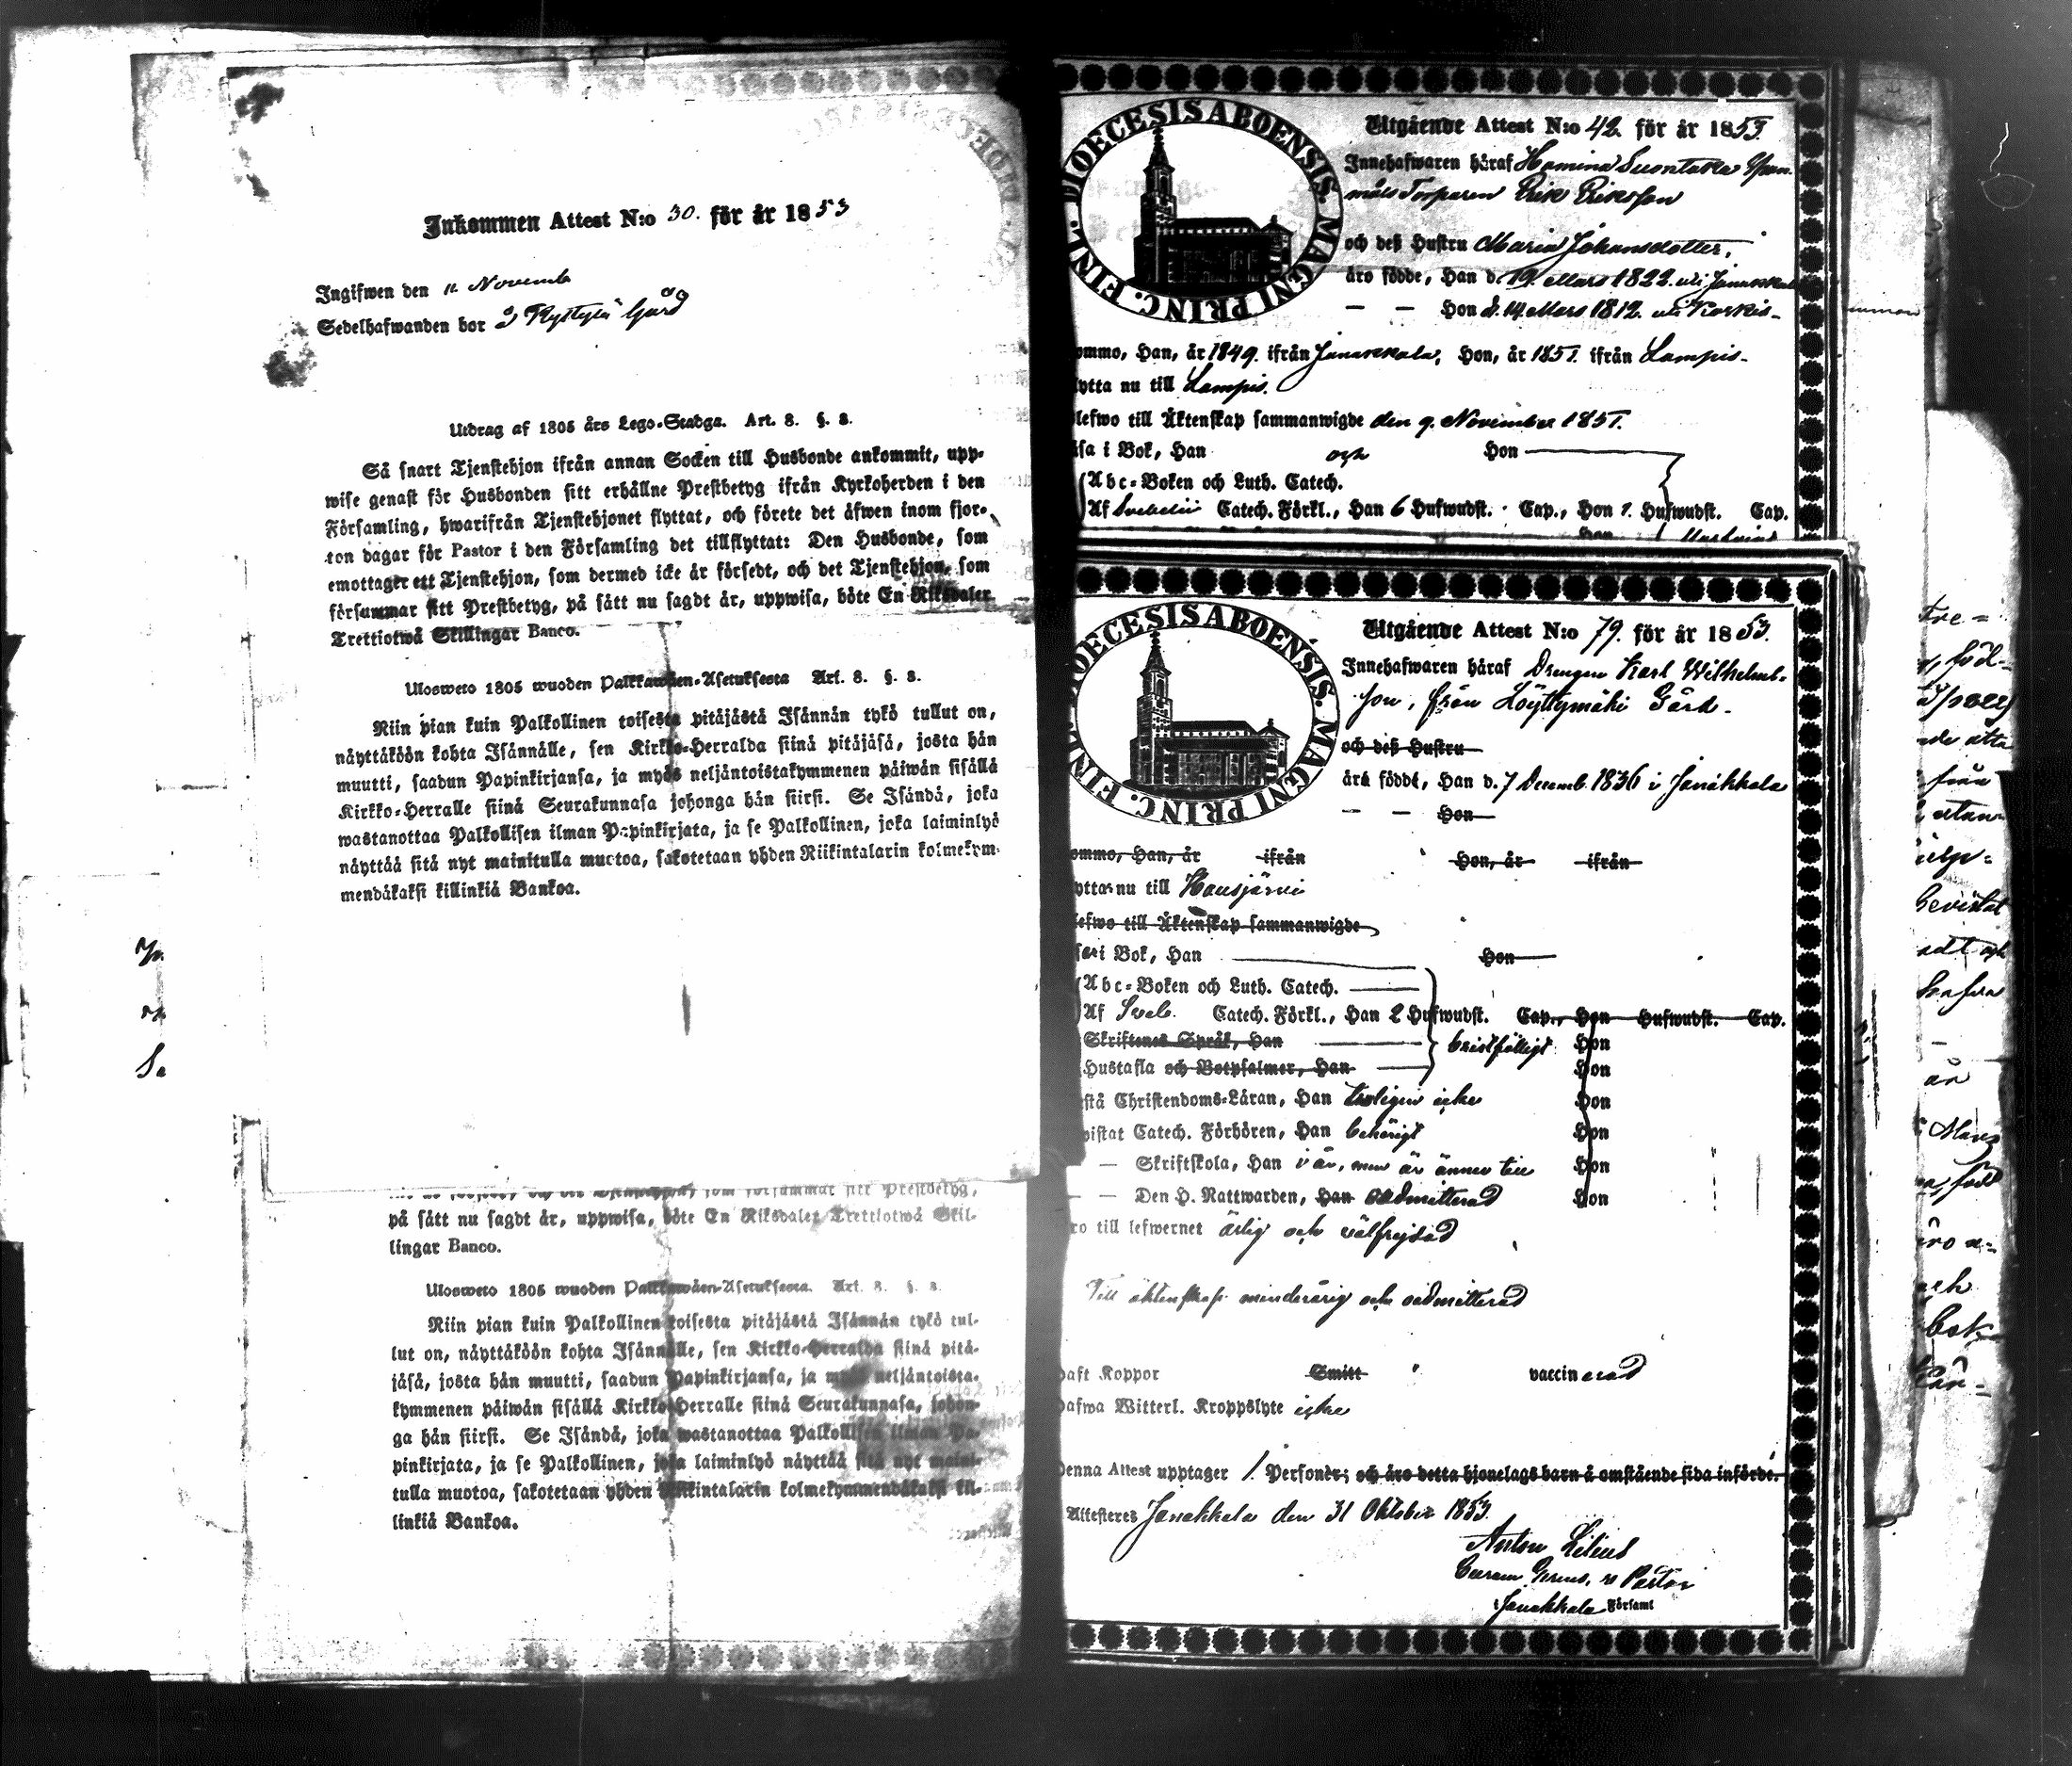 Inkommen Attest N:o 30. för år 1853
Ingifwen den 11 Novemb
Sedelhafwanden bor å Ryttylä Gård
Utdrag af 1805 års Lego-Stadga. Art. 8. §. 8.
Så snart Tjenstehjon ifrån annan Socken till Husbonde ankommit, upp-
wise genast för Husbonden sitt erhållne Prestbetyg ifrån Kyrkoherden i den
Församling, hwarifrån Tjenstehjonet flyttat, och förete det äfwen inom fjor-
ton dagar för Pastor i den Församling det tillflyttat: Den Husbonde, som
emottager ett Tjenstehjon, som dermed icke är försedt, och det Tjenstehjon, som
försummar sitt Prestbetyg, på sätt nu sagdt är, uppwisa, böte En Riksdaler
Trettiotwå Skillingar Banco.
Ulosweto 1805 wuoden Palkkawäen-Asetuksesta Art. 8. §. 8.
Niin pian kuin Palkollinen toisesta pitäjästä Isännän tykö tullut on,
näyttäköön kohta Isännälle, sen Kirkko-Herralda siinä pitäjäsä, josta hän
muutti, saadun Papinkirjansa, ja myös neljäntoistakymmenen päiwän sisällä
Kirkko-Herralle siinä Seurakunnasa johonga hän siirsi. Se Isändä, joka
wastanottaa Palkollisen ilman Papinkirjata, ja se Palkollinen, joka laiminlyö
näyttää sitä nyt mainitulla muotoa, sakotetaan yhden Riikintalarin kolmekym-
mendäkaksi killinkiä Bankoa.
som försummar sitt Prestbetyg,
på sätt nu sagdt är, uppwisa, böte En Riksdaler Trettiotwå Skil-
lingar Banco.
Ulosweto 1805 wuoden Palkkawäen-Asetuksesta. Art. 8. §. 8.
Niin pian kuin Palkollinen toisesta pitäjästä Isännän tykö tul-
lut on, näyttäköön kohta Isännälle, sen Kirkko-Herralda siinä pitä-
jäsä, josta hän muutti, saadun Papinkirjansa, ja myös neljäntoista-
kymmenen päiwän sisällä Kirkko-Herralle siinä Seurakunnasa, johon-
ga hän siirsi. Se Isändä, joka wastanottaa Palkollisen ilman Pa-
pinkirjata, ja se Palkollinen, joka laiminlyö näyttää sitä nyt maini-
tulla muotoa, sakotetaan yhden Riikintalarin kolmekymmendäkaksi kil-
linkiä Bankoa.
DIOECESIS ABOENSIS. MAGNI PRINC. FINL.
Utgående Attest N:o 42. för år 1851.
Innehafwaren häraf Hamina Suontaka
måls Torparen Erik Eriksson
och dess Hustru Maria Johansdotter,
äro födde, Han d. 19. Mars 1822. uti Janakkala
— — Hon d. 14 Mars 1812. uti Korkis-
ommo, Han, år 1849. ifrån Janakkala, Hon, år 1851. ifrån Lampis-
lytta nu till Lampis.
lefwo till Äktenskap sammanwigde den 9. November 1851.
äsa i Bok, Han och Hon
Abc-Boken och Luth. Catech.
Af Svebelii Catech. Förkl., Han 6 Hufwudst. Cap., Hon 1. Hufwudst. Cap.
DIOECESIS ABOENSIS. MAGNI PRINC. FINL.
Utgående Attest N:o 79. för år 1853.
Innehafwaren häraf Drengen Karl Wilhelms-
son, från Löyttymäki Gård.
och dess Hustru
ära födde, Han d. 7 Decemb. 1836 i Janakkala
— — Hon
ommo, Han, år ifrån Hon, år ifrån
ytta nu till Hausjärvi
lefwo till Äktenskap sammanwigde
i Bok, Han Hon
Abc-Boken och Luth. Catech.
Af Sveb. Catech. Förkl., Han 2 Hufwudst. Cap., Hon Hufwudst. Cap.
Skriftenes Språk, Han bristfälligt Hon
Hustafla och Botpsalmer, Han Hon
stå Christendoms-Läran, Han troligen icke Hon
istat Catech. Förhören, Han behörigt Hon
— Skriftskola, Han i år, men är ännu till Hon
— — Den H. Nattwarden, Han oadmitterad Hon
ro till lefwernet ärlig och välfrejdad
Till äktenskap minderårig och oadmitterad
haft Koppor Smitt vaccinerad
hafwa Witterl. Kroppslyte icke
Denna Attest upptager 1. Personer; och äro detta hjonelags barn å omstående sida införde.
Attesteres Janakkala den 31 Oktober 1853.
Anton Lilius
Pastor
i Janakkala Församl